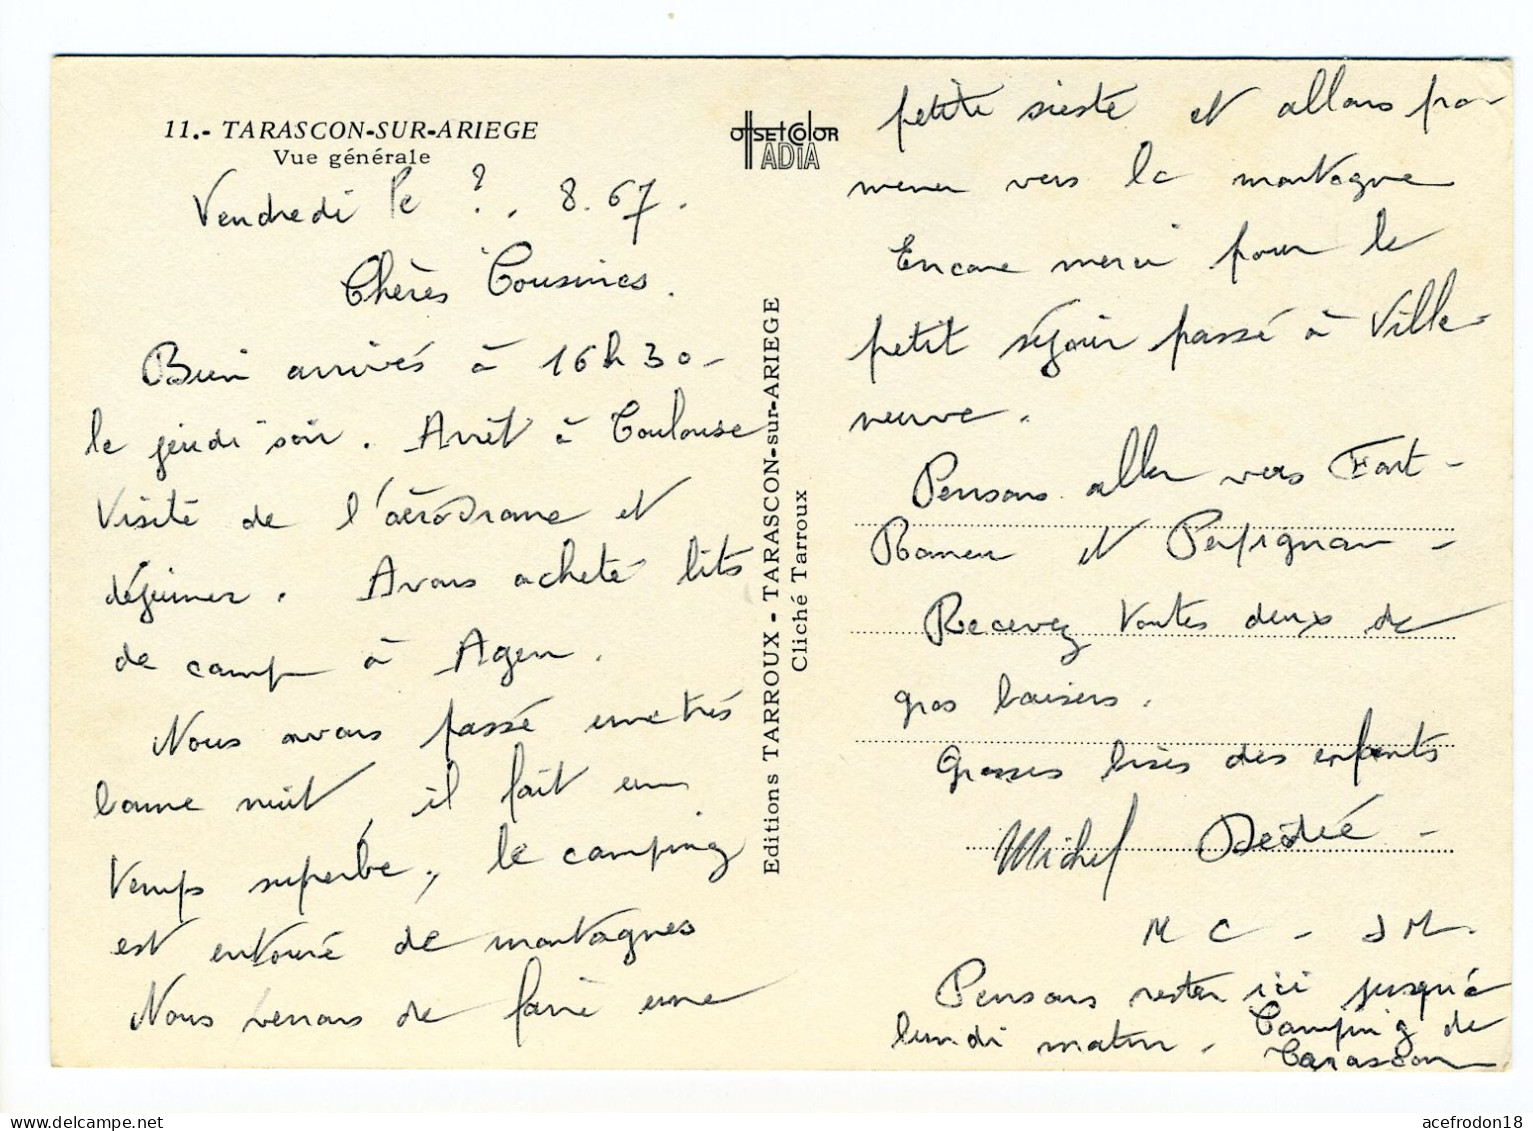 11.- TARASCON-SUR-ARIEGE
Vue générale
OffSet Color
ADIA
Vendredi le ?. 8. 67.
Chères Cousines.
Bien arrivés à 16h30-
le jeudi soir. Arrêt à Toulouse
Visite de l'aérodrome et
déjeuner. Avons acheté lits
de camp à Agen.
Nous avons passé une très
bonne nuit, il fait un
temps superbe, le camping
est entouré de montagnes
Nous venons de faire une
Editions TARROUX - TARASCON-sur-ARIEGE
Cliché Tarroux
petite sieste et allons pro-
mener vers la montagne
Encore merci pour le
petit séjour passé à Ville-
neuve.
Pensons aller vers Font-
Romeu et Perpignan -
Recevez toutes deux de
gros baisers.
Grosses bises des enfants
Michel Dédée -
M C - J M.
Pensons rester ici jusqu'à
lundi matin - Camping de
Tarascon
acefrodon18